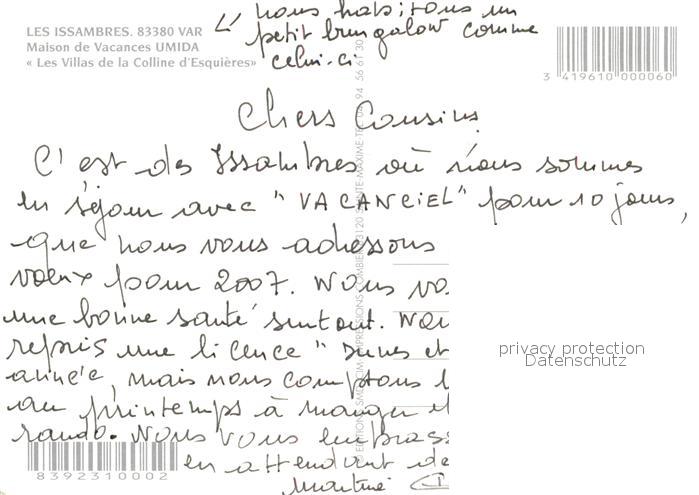 LES ISSAMBRES. 83380 VAR
Maison de Vacances UMIDA
« Les Villas de la Colline d'Esquières»
nous habitons un
petit bungalow comme
celui-ci
3 419610 000060
Chers Cousins,
C'est des Issambres où nous sommes
en séjour avec "VACANCIEL" pour 10 jours,
que nous vous adressons
voeux pour 2007. Nous vo
une bonne santé surtout. Nou
repris une licence " et
année, mais nous comptons
au printemps à manger
rando. Nous vous embrass
en attendant de
Martine
8392310002
privacy protection
Datenschutz